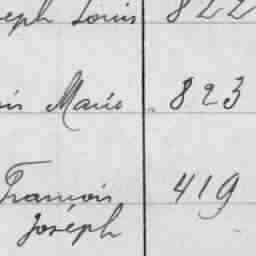 eph Louis 822
is Marie 823
François 419
Joseph